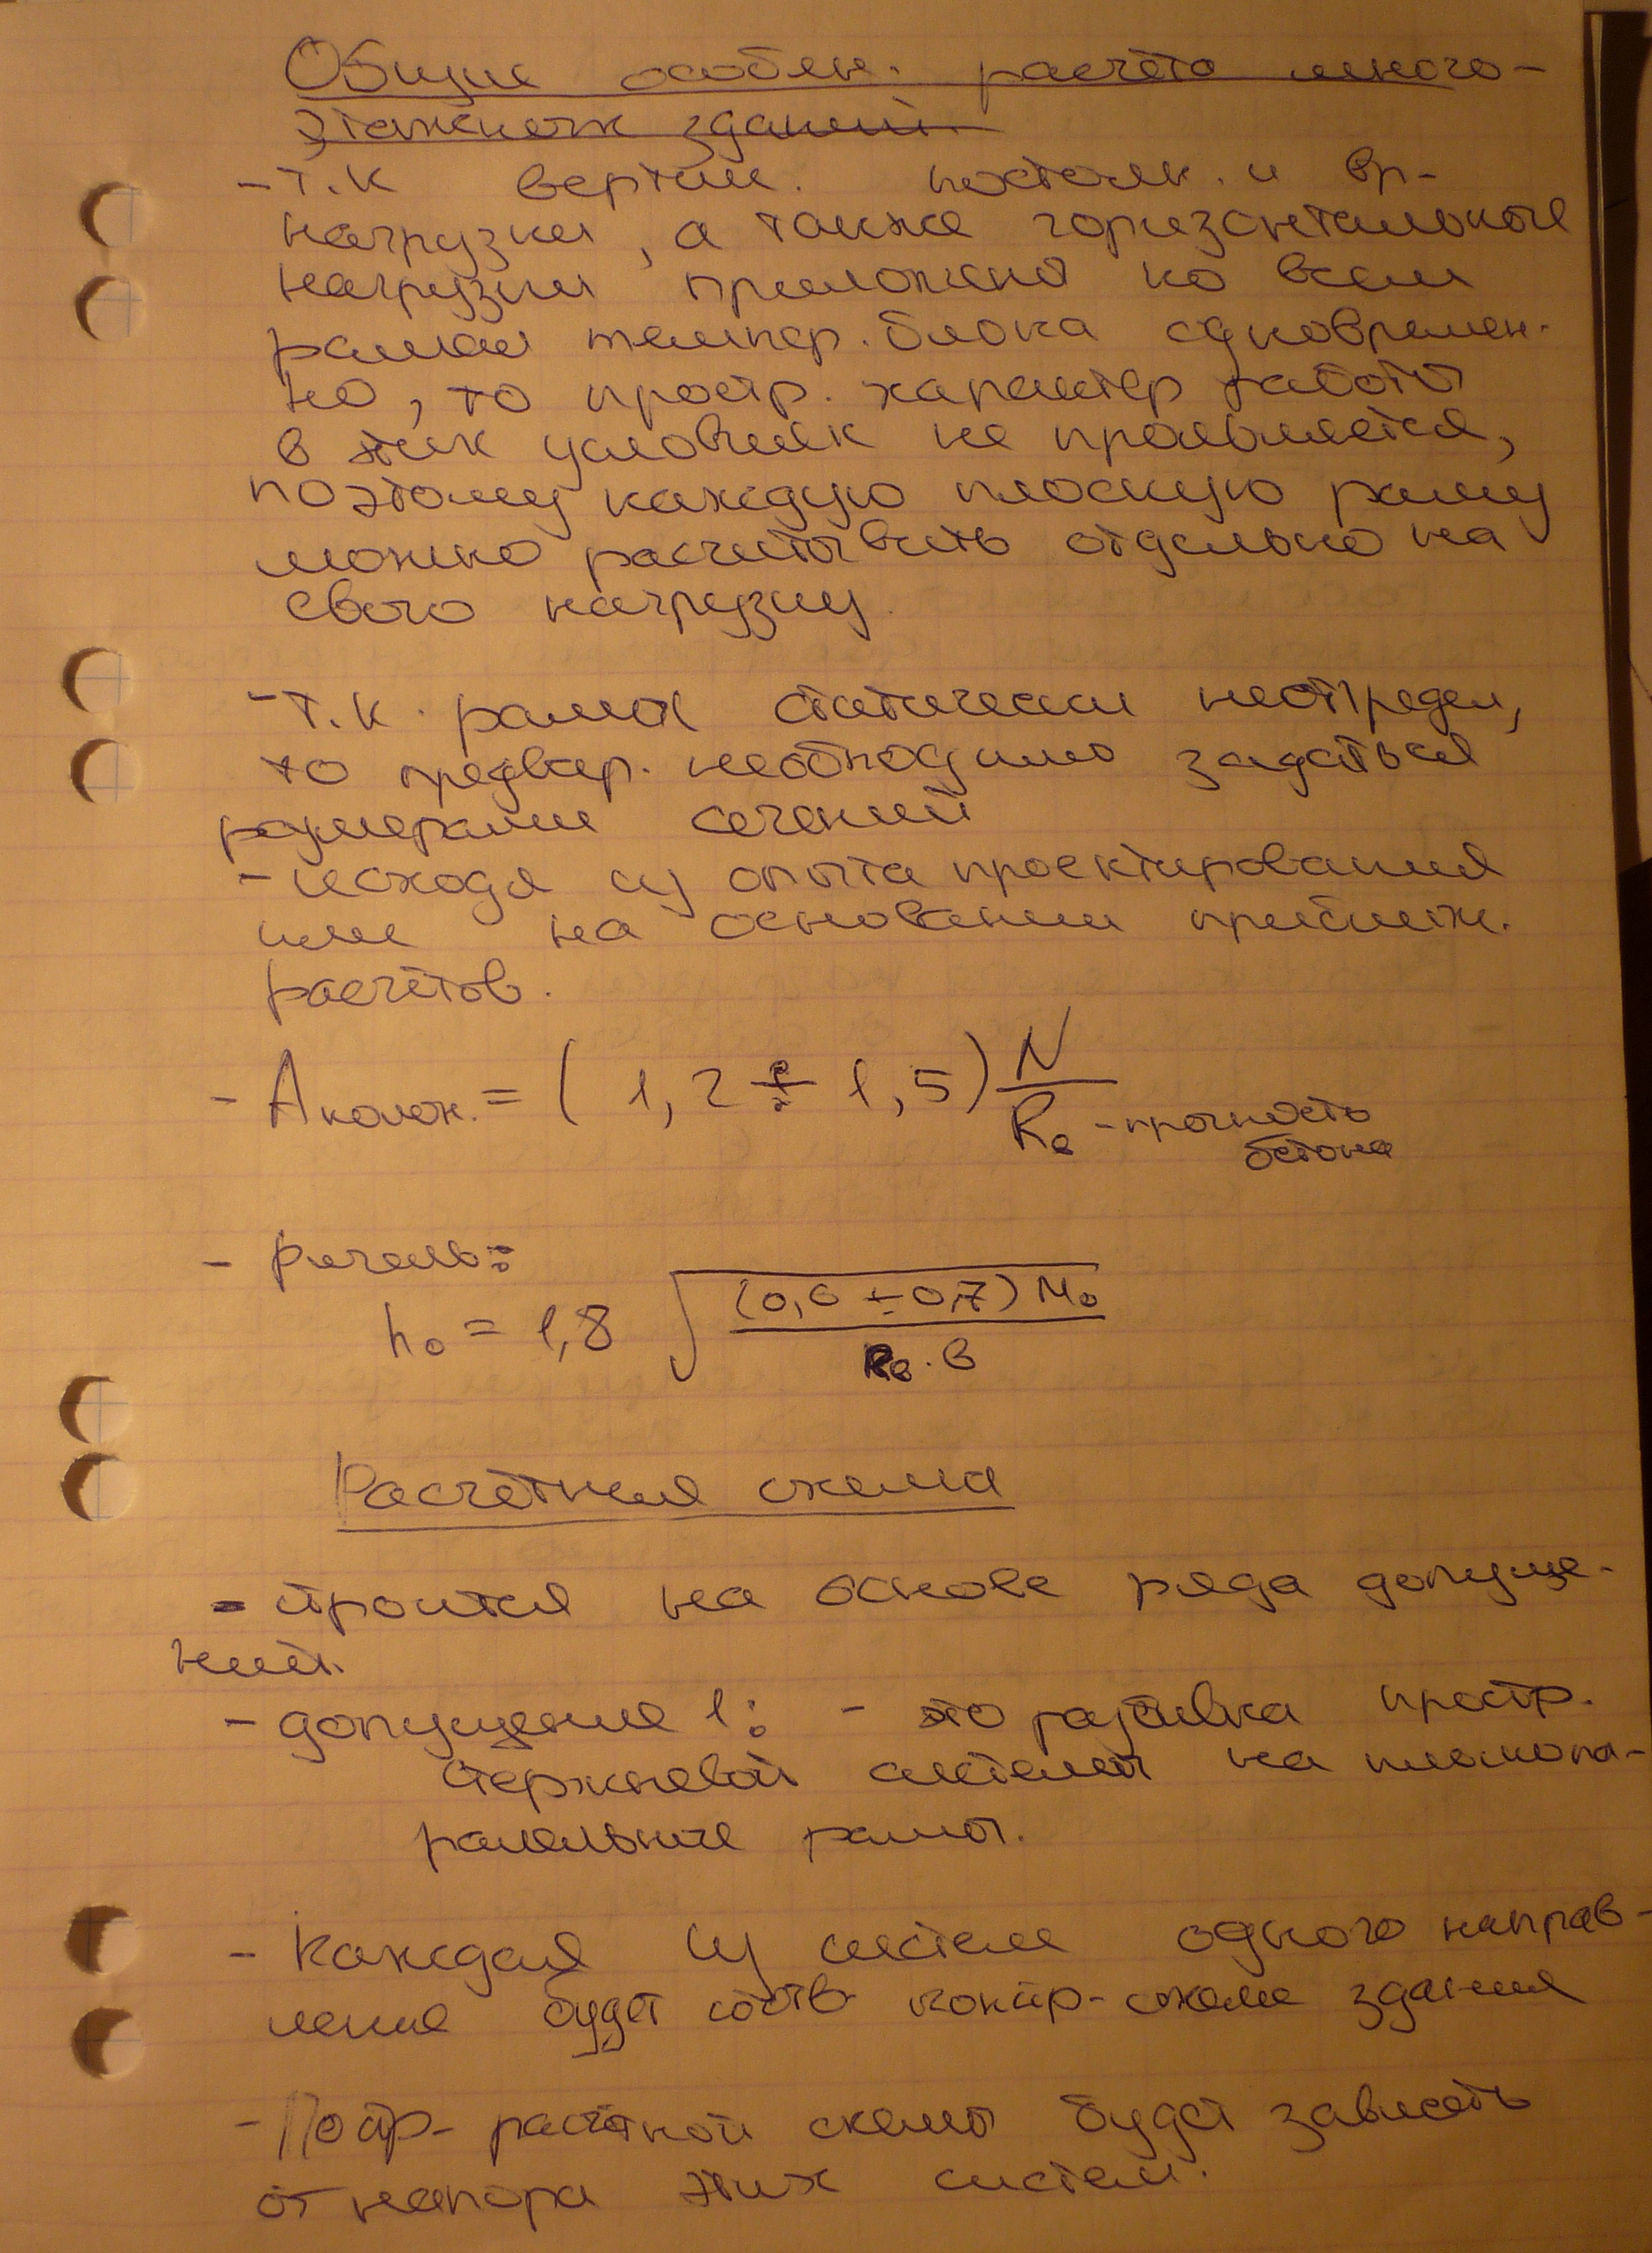 Общие особен. расчёта много-
этажных зданий
- т.к вертик. постоян. и вр-
нагрузки, а также горизонтальные
нагрузки приложены ко всем
рамам темпер. блока одновремен-
но, то простр. характер работы
в этих условиях не проявляется,
поэтому каждую плоскую раму
можно расчитывать отдельно на
свою нагрузку.
- т.к. рамы статически неопредел,
то предвар. необходимо задаться
размерами сечений
- исходя из опыта проектирования
или на основании приближ.
расчётов.
- Aколон. = (1,2 ÷ 1,5) N / Rв - прочность
бетона
- ригель:
h₀ = 1,8 √((0,6 ÷ 0,7) M₀ / Rв · в)
Расчётная схема
- строится на основе ряда допуще-
ний.
- допущение 1: - это разбивка простр.
стержневой системы на плоскопа-
ралельные рамы.
- Каждая из систем одного направ-
ления будет соотв констр-схеме здания
- Постр- расчётной схемы будет зависеть
от напора этих систем.